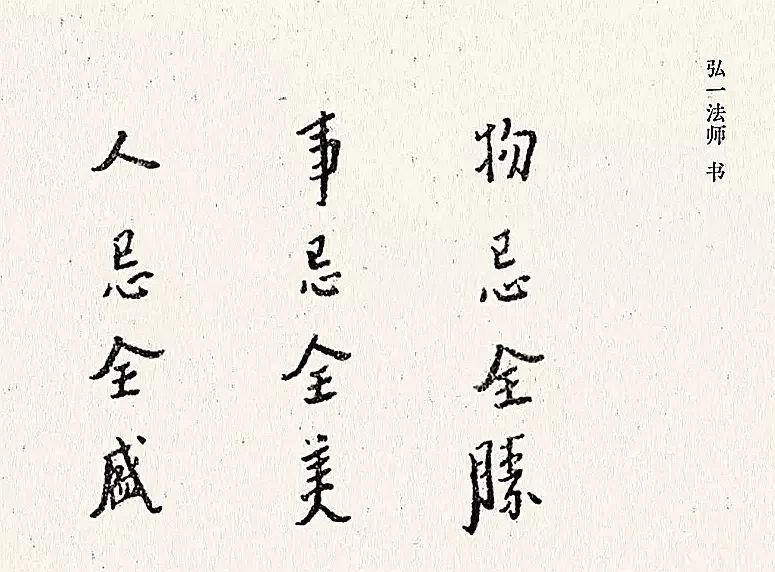 弘一法师 书
物忌全胜
事忌全美
人忌全盛